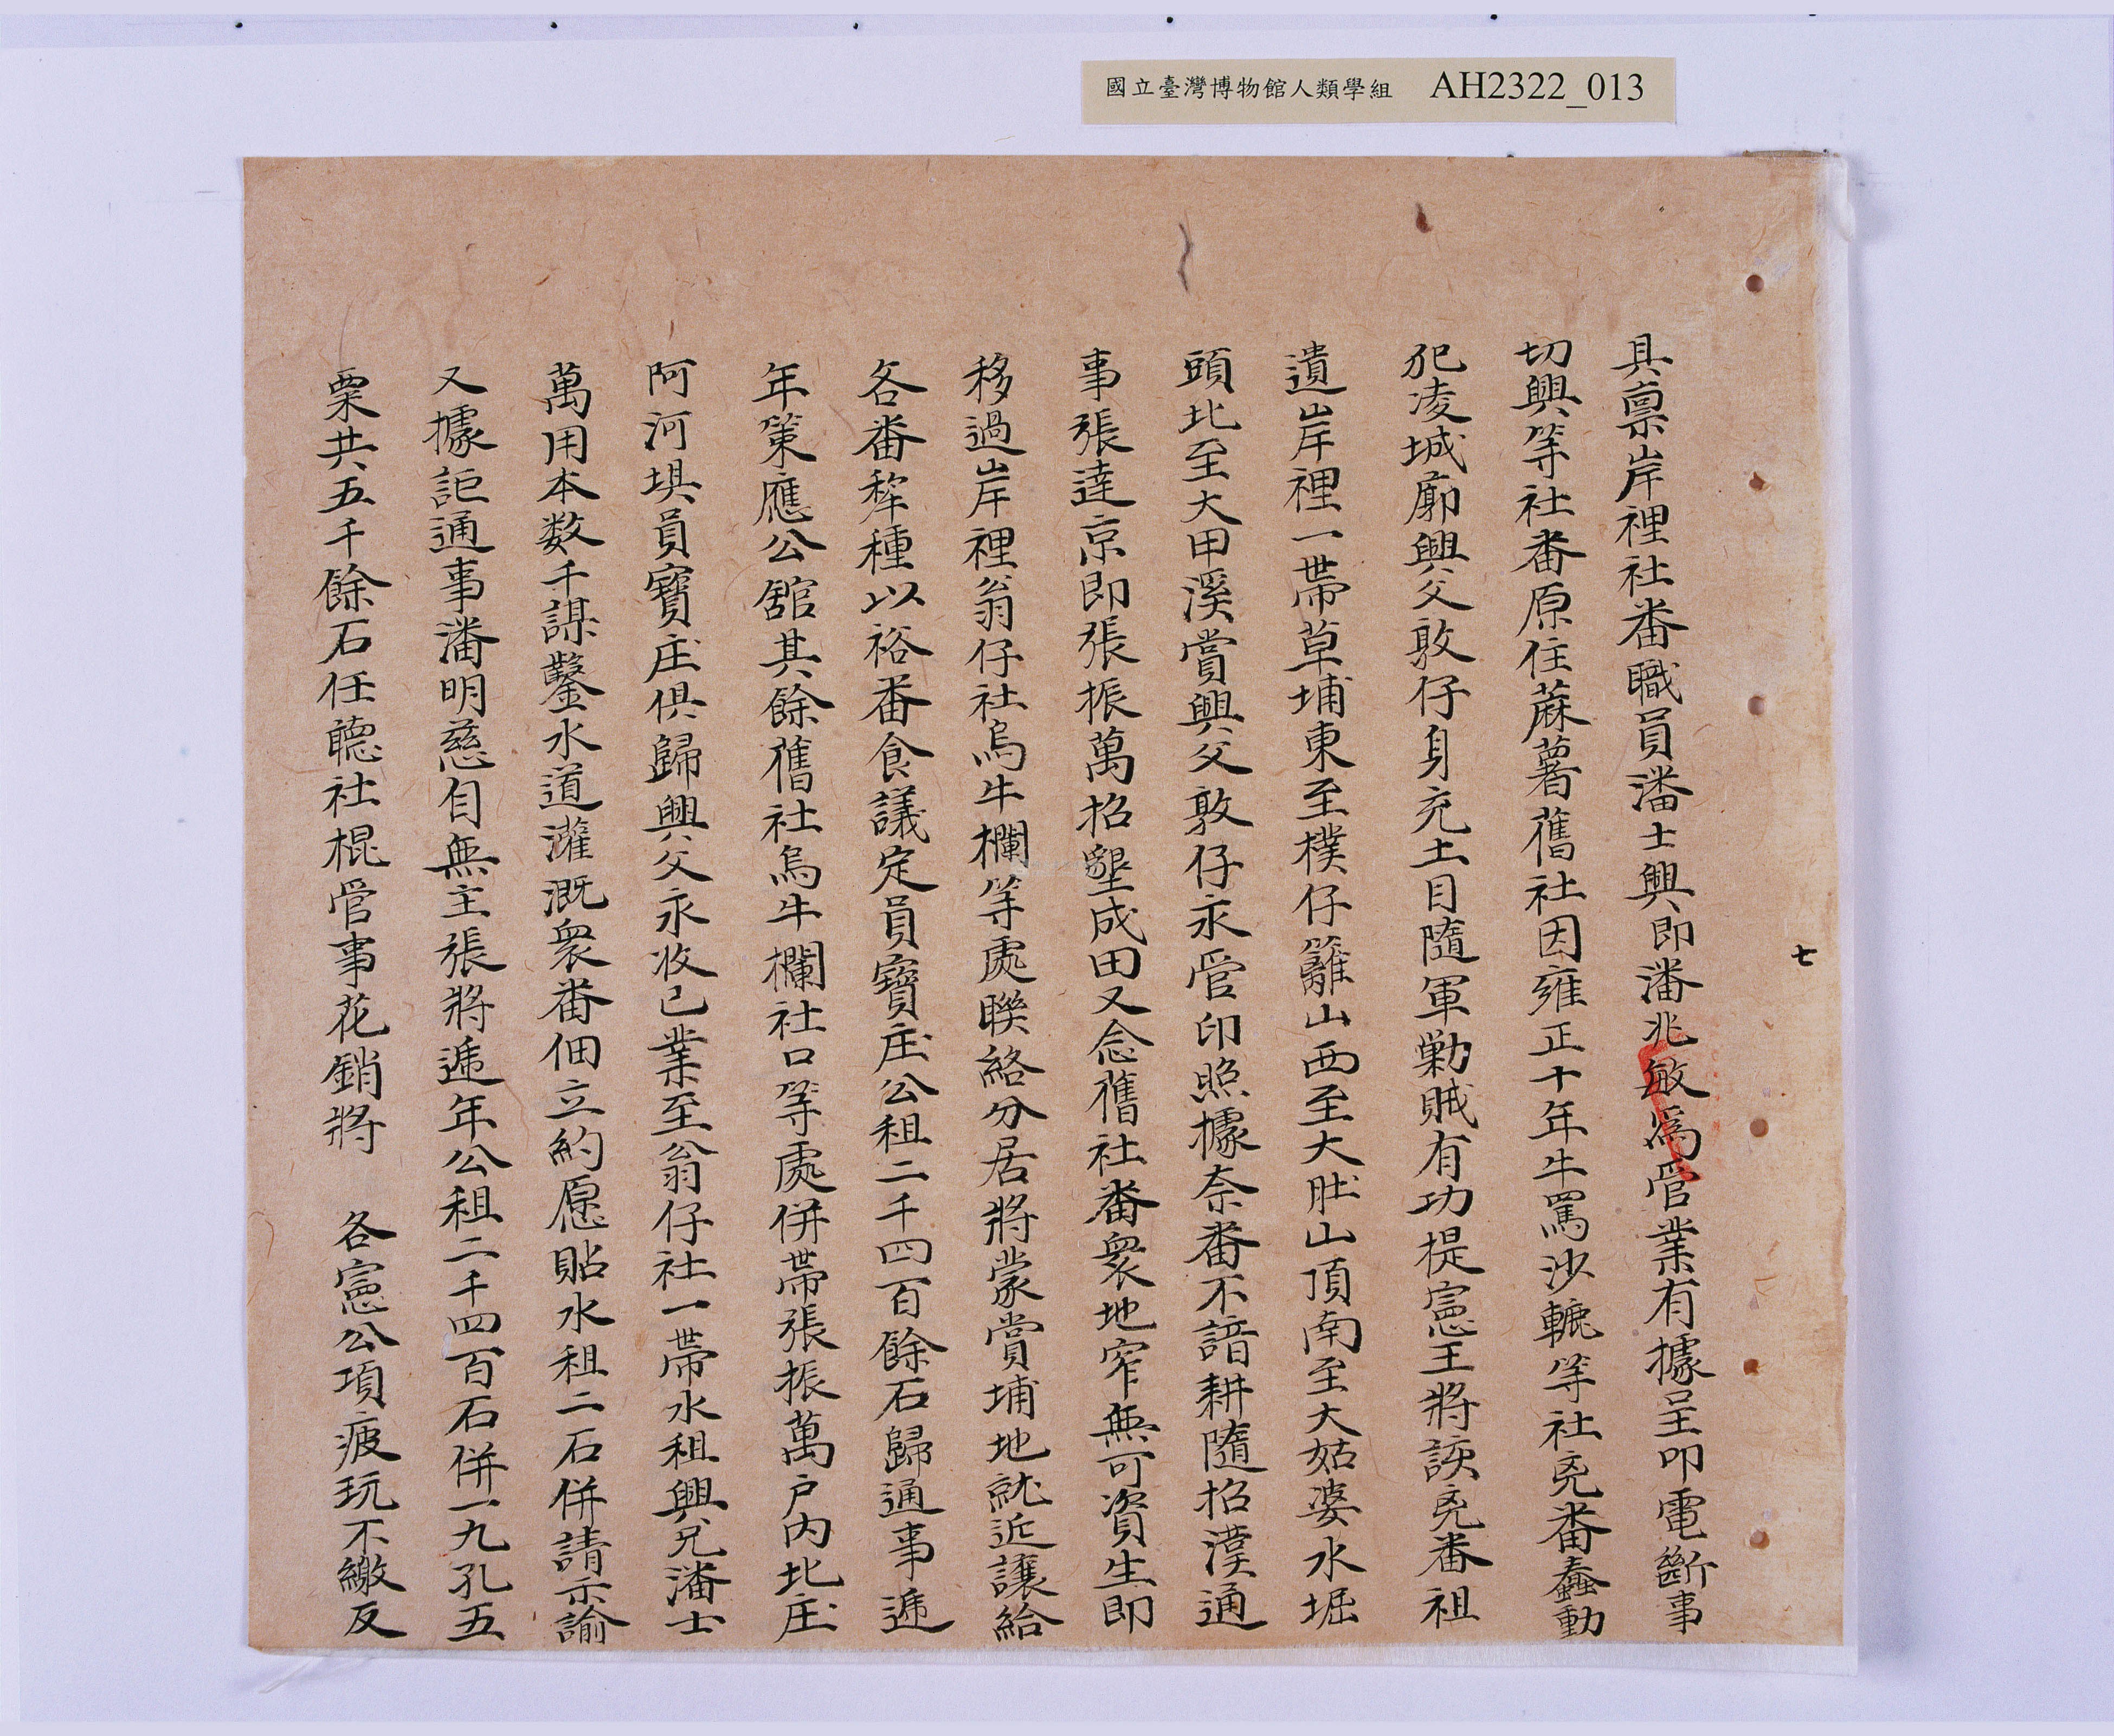 國立臺灣博物館人類學組 AH2322_013
七
具稟岸裡社番職員潘士興即潘兆敏為管業有據呈叩電斷事
切興等社番原住蔴薯舊社因雍正十年牛罵沙轆等社兇番蠢動
犯凌城廓興父敦仔身充土目隨軍剿賊有功提憲王將該兇番祖
遺岸裡一帶草埔東至樸仔籬山西至大肚山頂南至大姑婆水堀
頭北至大甲溪賞興父敦仔永管印照據奈番不諳耕隨招漢通
事張達京即張振萬招墾成田又念舊社番衆地窄無可資生即
移過岸裡翁仔社烏牛欄等處聯絡分居將蒙賞埔地就近讓給
各番犂種以裕番食議定員寶庄公租二千四百餘石歸通事遞
年策應公舘其餘舊社烏牛欄社口等處併帶張振萬户內北庄
阿河垻員寶庄俱歸興父永收已業至翁仔社一帶水租興兄潘士
萬用本数千謀鑿水道灌溉衆番佃立約愿貼水租二石併請示諭
又據詎通事潘明慈目無主張將遞年公租二千四百石併一九孔五
粟共五千餘石任聽社棍管事花銷將 各憲公項疲玩不繳反